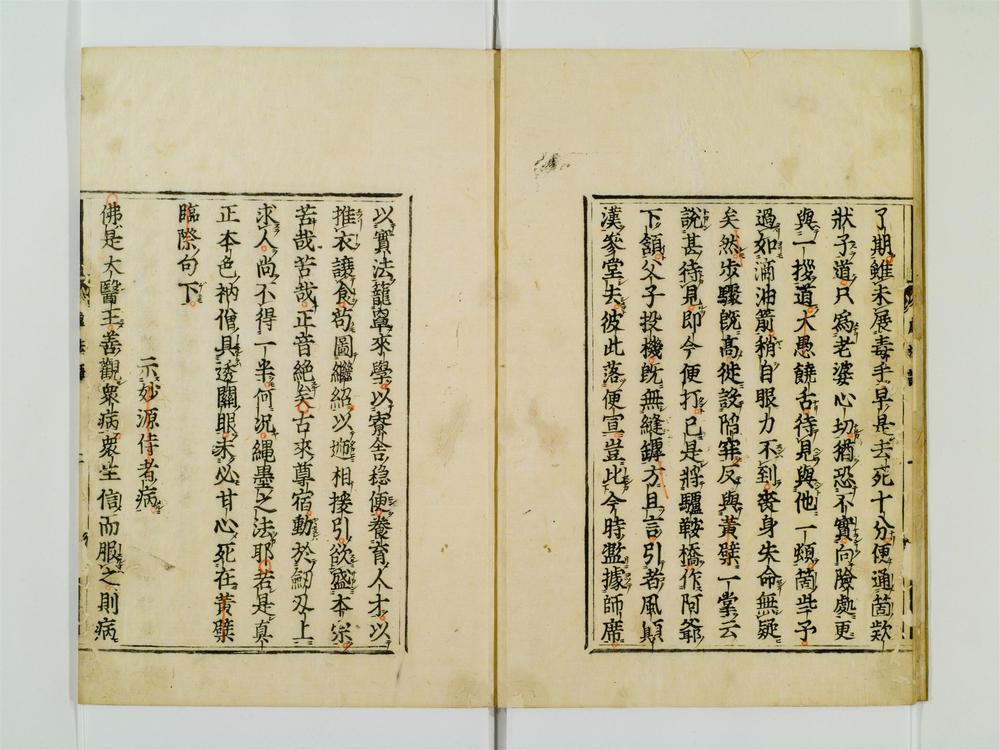 了期雖未展毒手早是去死十分便通箇欵
狀子道只爲老婆心切猶恐不實向險處更
與一拶道大愚饒舌待見與他一頓箇些子
過如滿油箭稍自眼力不到喪身失命無疑
矣然步驟旣高徙設陷穽反與黃檗一掌云
說甚待見即今便打已是將驢鞍橋作阿爺
下頷父子投機旣無縫罅方且言引者風顚
漢參堂去彼此落便宜豈比今時濫據師席
以實法籠罩來學以寮舍穩便養育人才以
推衣讓食苟圖繼紹以
相接引欲盛本宗
苦哉苦哉正音絶矣古來尊宿動於劒刃上
求人尚不得一半何况繩墨之法耶若是眞
正本色衲僧具透關眼未必甘心死在黃檗
臨際句下
示妙源侍者病
佛是大醫王善觀衆病衆生信而服之則病